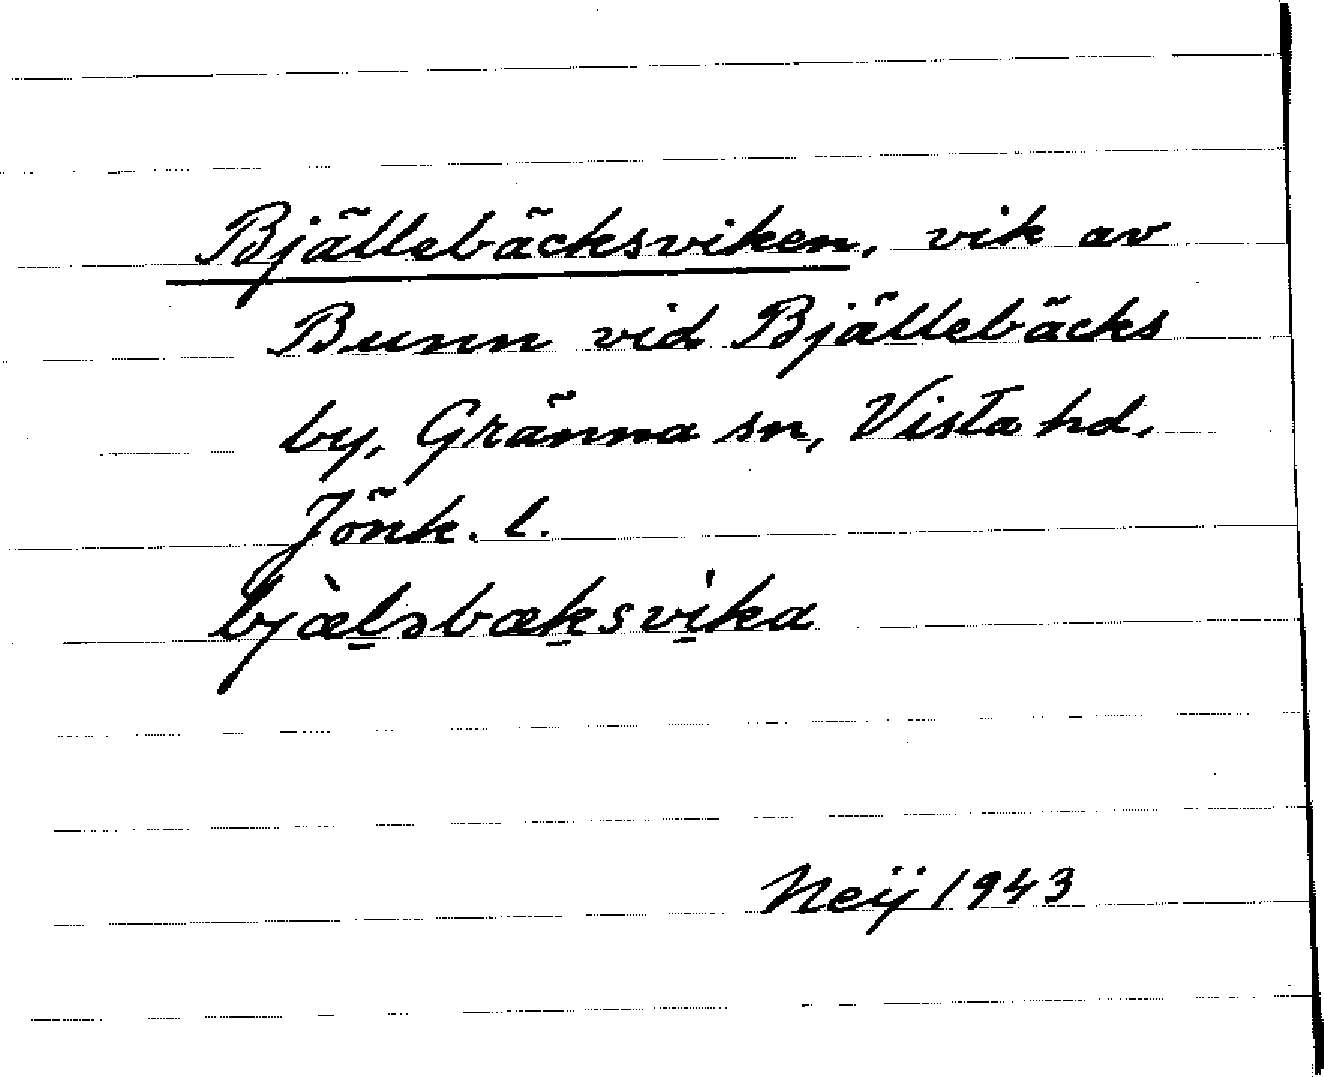 Bjällebäcksviken, vik av
Bunn vid Bjällebäcks
by, Gränna sn, Vista hd.
Jönk. l.
bjæ̀lsbæksvika
Neij 1943